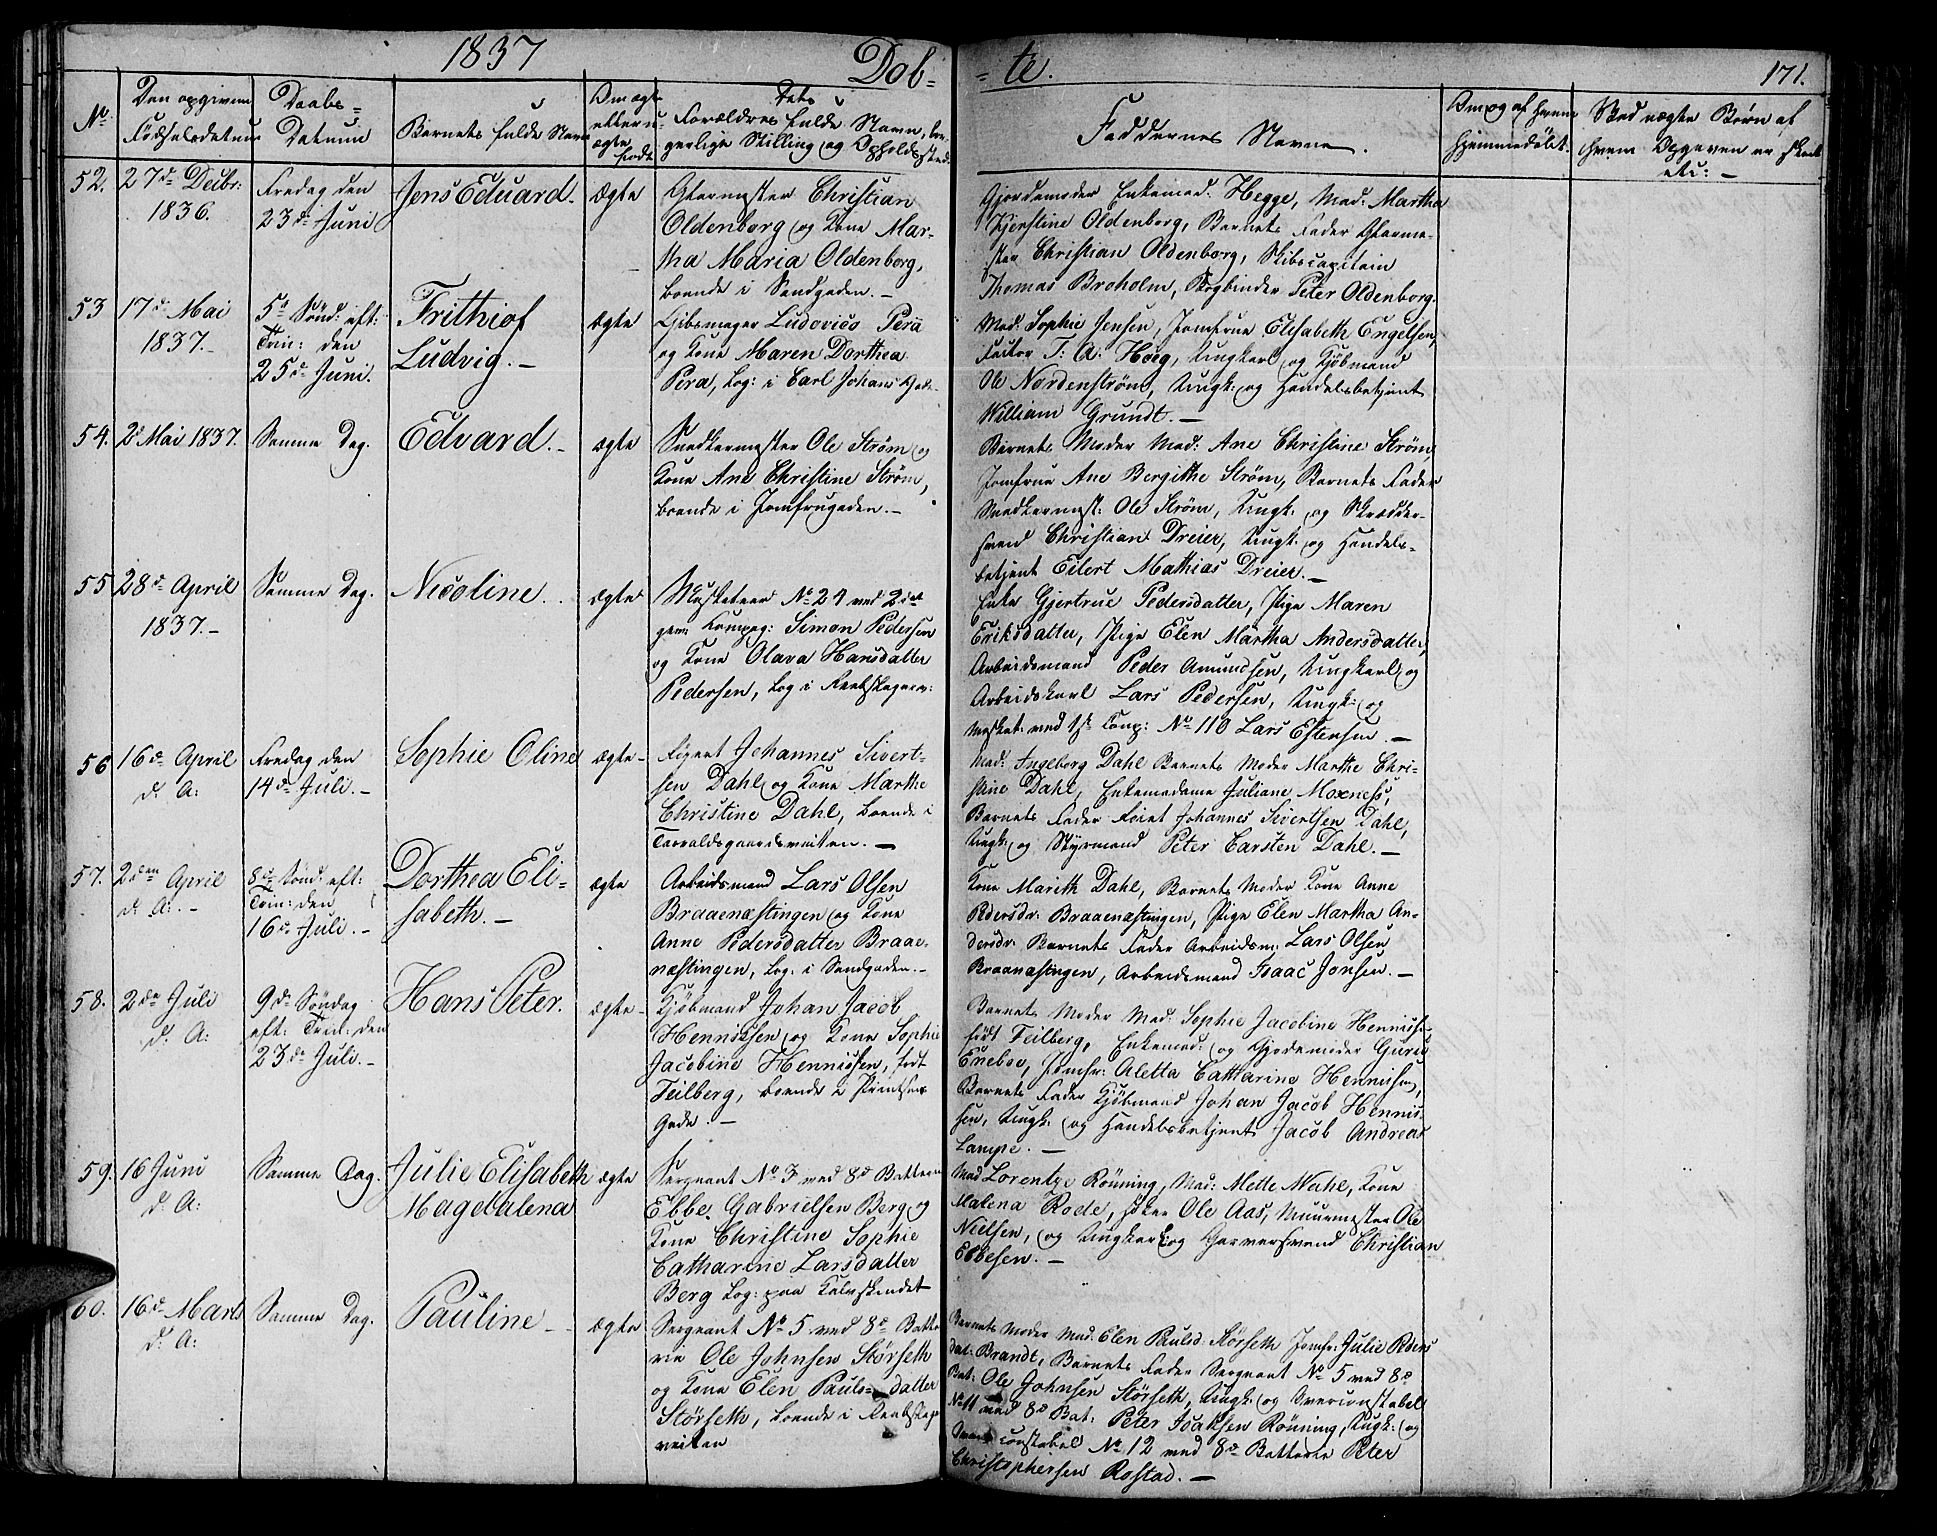 1837 Døb-
-te.
171.
No
Den opgivne
Fødselsdatum
Daabs-
Datum
Barnets fulde Navn
Om ægte
eller u-
ægte
født
Forældres fulde Navn, bor-
gerlige Stilling og Opholdssted
Faddernes Navne.
Om og af hvem
hjemmedøbt.
Ved uægte Børn af
hvem Opgaven er skeet
etc: -
52. 27de Decbr:
1836.
Fredag den
23de Juni
Jens Eduard.
Ægte
Glarmester Christian
Oldenborg og Kone Mar-
tha Maria Oldenborg,
boende i Sandgaden.-
Gjordemoder Enkemad: Hegge, Mad: Martha
Kjerstine Oldenborg, Barnets Fader Glarme-
ster Christian Oldenborg, Skibscapitain
Thomas Broholm, Bogbinder Peter Oldenborg.
53 17de Mai
1837.-
5te Sønd: eft:
Trin: den
25de Juni.
Frithiof
Ludvig.-
ægte
Gibsmager Ludovico Pera
og Kone Maren Dorthea
Pera, Log: i Carl Johans Gade
Mad: Sophie Jensen, Jomfrue Elisabeth Engelsen,
Factor T: A: Høeg, Ungkarl og Kjøbmand
Ole Nordenstrøm, Ungk: og Handelsbetjent
William Grundt.-
54. 2de Mai 1837.
Samme Dag.
Edvard.-
ægte
Snedkermester Ole Strøm og
Kone Ane Christine Strøm,
boende i Jomfrugaden.-
Barnets Moder Mad: Ane Christine Strøm,
Jomfrue Ane Bergithe Strøm, Barnets Fader
Snedkermest: Ole Strøm, Ungk: og Skrædder-
svend Christian Dreier, Ungk: og Handels-
betjent Eilert Mathias Dreier.-
55 28de April
1837.-
Samme Dag.
Nicoline.
ægte
Musketeer No 24 ved 2det
gev: Compag: Simon Pedersen
og Kone Olava Hansdatter
Pedersen, Log i
Enke Gjertrue Pedersdatter, Pige Maren
Eriksdatter, Pige Elen Martha Andersdatter,
Arbeidsmand Peder Amundsen, Ungkarl og
Arbeidskarl Lars Pedersen, Ungk: og
Musket: ved 1ste Comp: No 110 Lars Estensen.-
56 16de April
d: A:
Fredag den
14de Juli.-
Sophie Oline
ægte-
Figant Johannes Sivert-
sen Dahl og Kone Marthe
Christine Dahl, boende i
Tarraldsgaardsveiten.-
Mad: Ingeborg Dahl Barnets Moder Marthe Chri-
stine Dahl, Enkemadame Juliane Moxness,
Barnets Fader Johannes Sivertsen Dahl,
Ungk: og Styrmand Peter Carsten Dahl.-
57. 2den April
d: A:-
8de Sønd: eft:
Trin: den
16de Juli.-
Dorthea Eli-
sabeth.-
ægte
Arbeidsmand Lars Olsen
Braaenæstingen og Kone
Anne Pedersdatter Braae-
næstingen, Log: i Sandgaden.-
Kone Marith Dahl, Barnets Moder Kone Anne
Pedersdr: Braaenæstingen, Pige Elen Martha An-
dersdr: Barnets Fader Arbeidsm: Lars Olsen
Braanæstingen, Arbeidsmand Isaac Jonsen.-
58. 2den Juli
d: A:
9de Søndag
eft: Trin: den
23de Juli.-
Hans Peter.
ægte-
Kjøbmand Johan Jacob
Hennissen og Kone Sophie
Jacobine Hennissen, født
Feilberg, boende i Printsens
Gade.-
Barnets Moder Mad: Sophie Jacobine Hennissen
født Feilberg, Enkemad: og Gjordemoder Guru
Eneboe, Jomfr: Aletta Catharine Hennissen,
Barnets Fader Kjøbmand Johan Jacob Hennis-
sen, Ungk: og Handelsbetjent Jacob Andreas
Lampe.-
59. 16 Juni
d: A:
Samme Dag.
Julie Elisabeth
Magdalena
ægte
Sergeant No 3 ved 8de Batterie
Ebbe Gabrielsen Berg og
Kone Christine Sophie
Catharine Larsdatter
Berg Log: paa Kalvskindet
Mad Lorentze Rönning, Mad: Mette Wahl, Kone
Malena Rode, Høker Ole Aas, Muurmester Ole
Nielsen, og Ungkarl og Garversvend Christian
Ebbesen.-
60. 16de Marts
d: A:
Samme Dag.
Pauline-
ægte
Sergeant No 5 ved 8de Batte-
rie Ole Johnsen Störseth
og Kone Elen Pauls-datter
Störseth, boende i
veiten
Barnets Moder Mad: Elen Paulsd. Störseth Jomfr: Julie Roers
dat: Brandt, Barnets Fader Sergeant No 5 ved 8de
Bat: Ole Johnsen Störseth, Ungk: og Overconstabel
No 11 ved 8de Bat: Peter Isaksen Rönning, Ungk: og
constabel No 12 ved 8de Batterie Peter
Christophersen Rostad.-